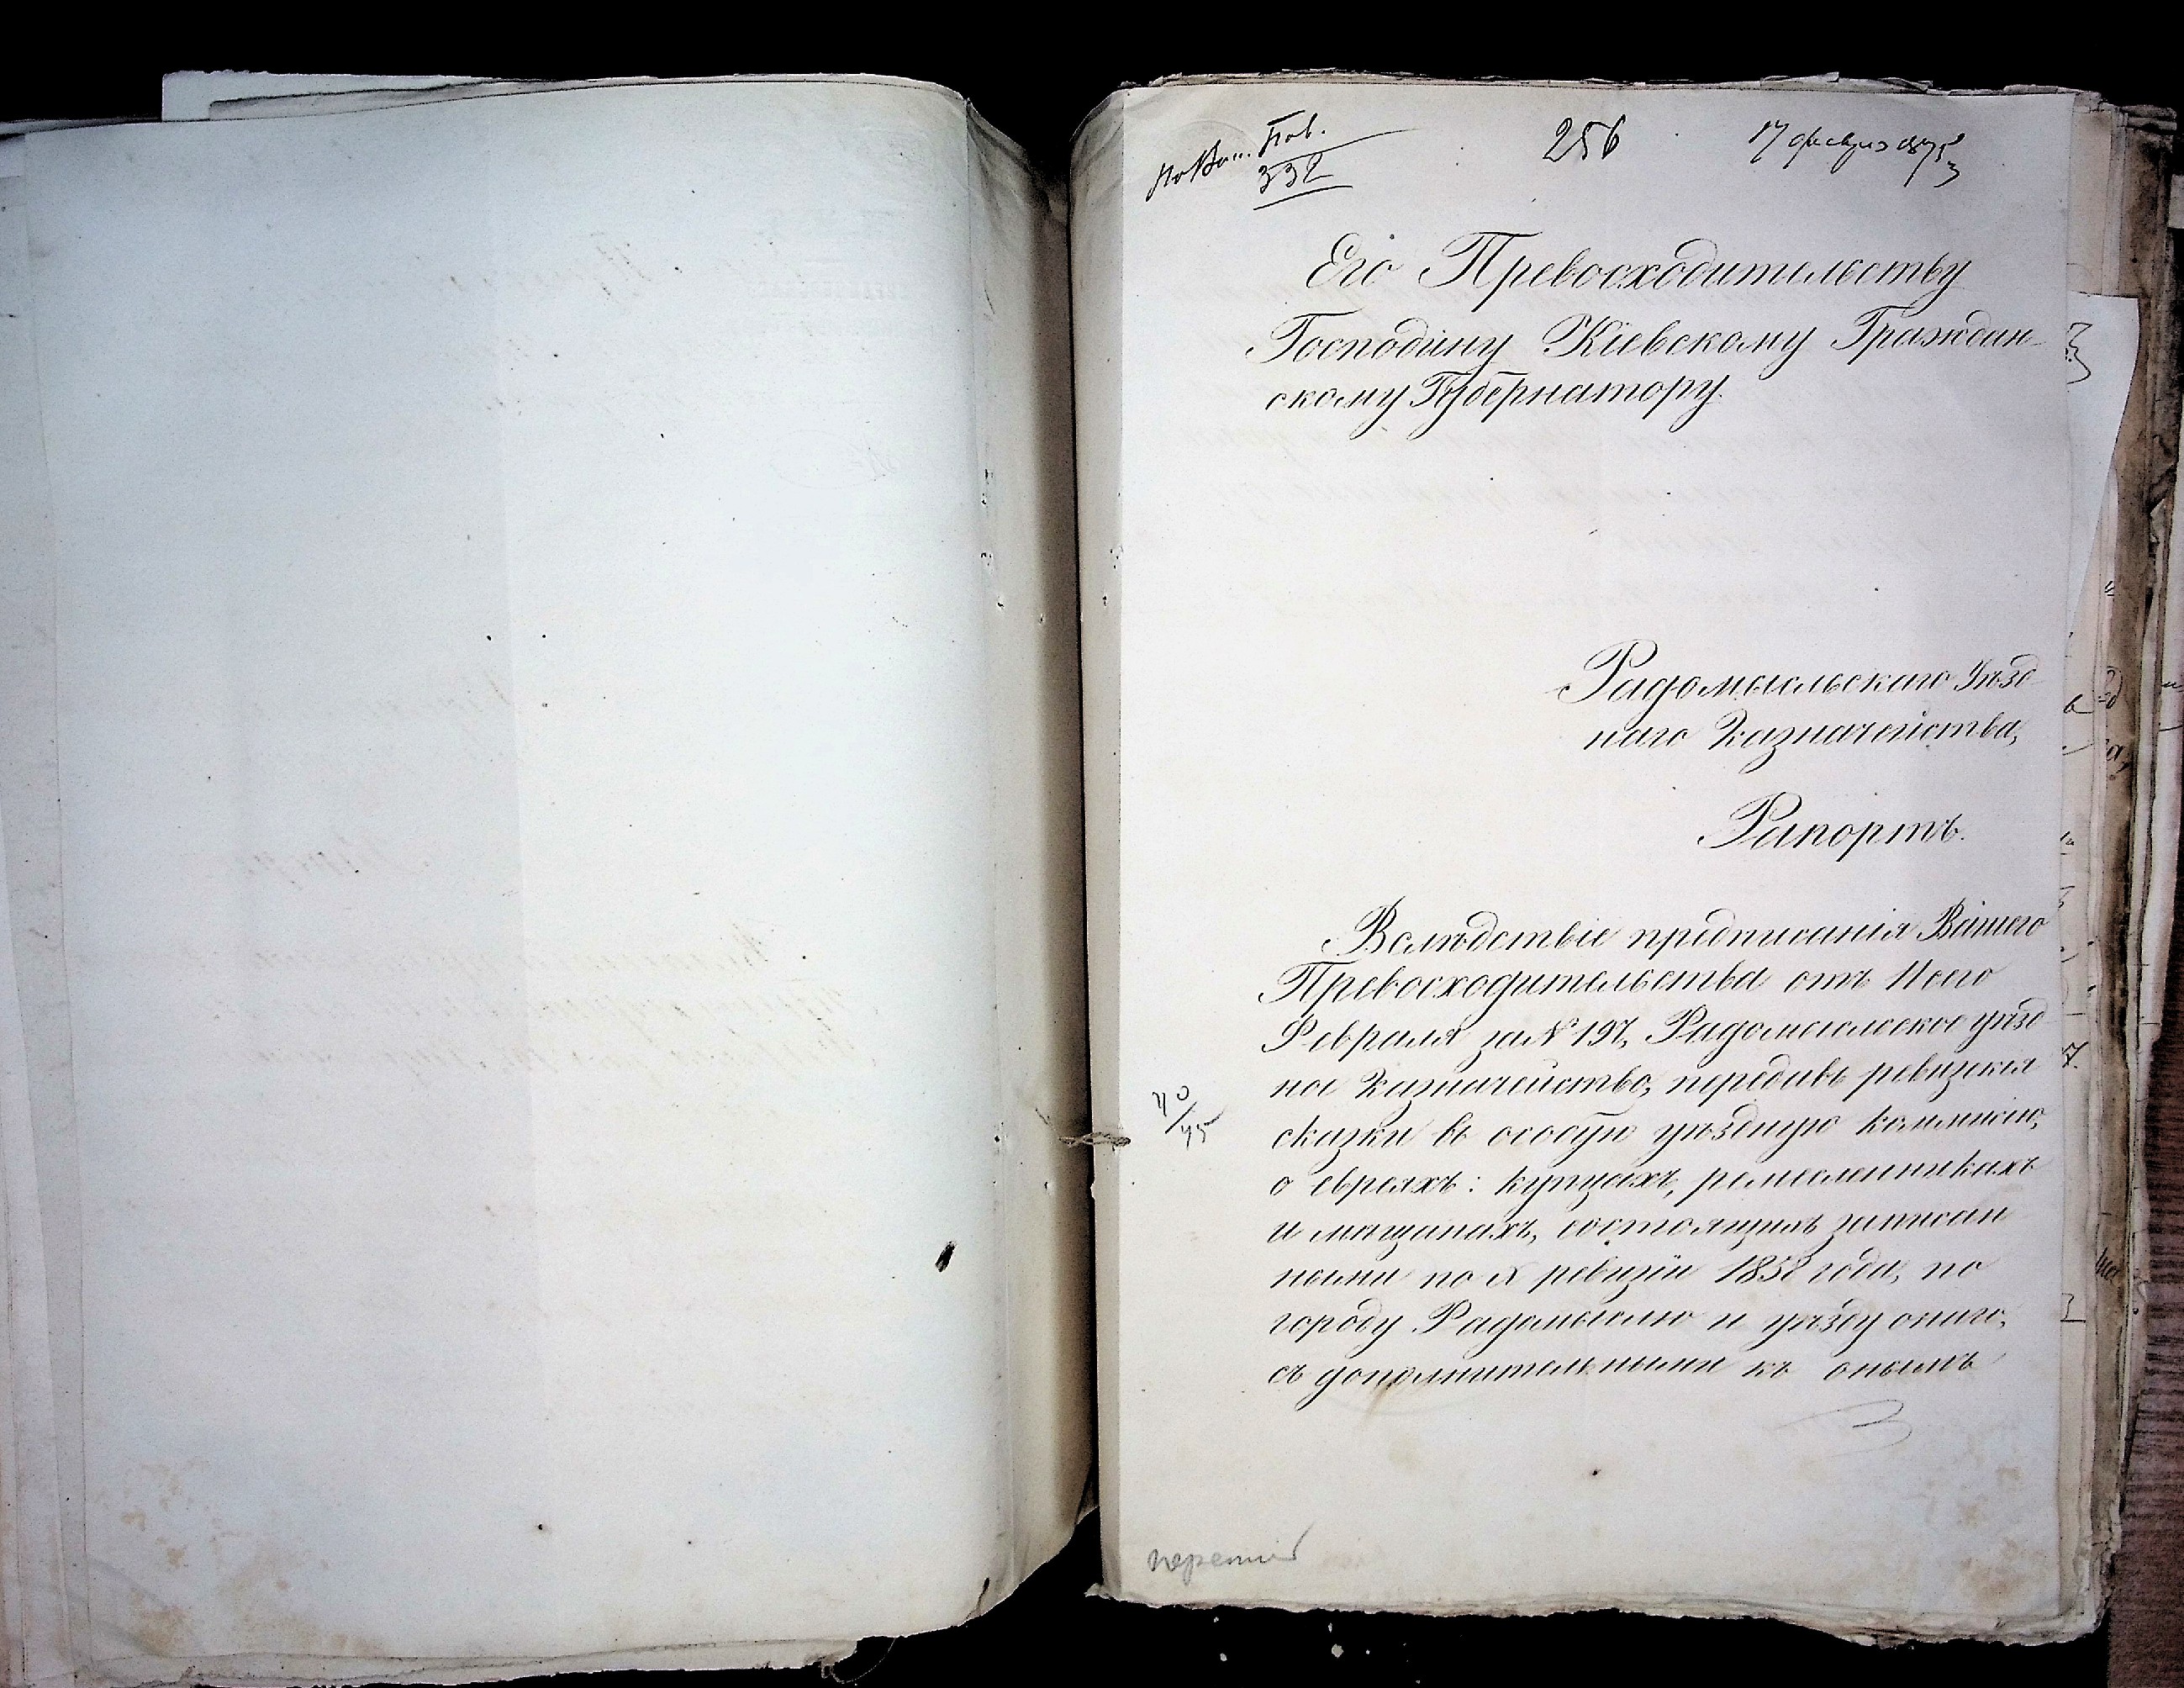 По Воин. Пов.
332
256
17 февр. 1875
Его Превосходительству
Господину Кіевскому Граждан-
скому Губернатору.
Радомысльскаго Уѣзд-
наго Казначейства,
Рапортъ.
Вслѣдствіе предписанія Вашего
Превосходительства отъ 11сего
Февраля за № 197, Радомысльское уѣзд-
ное Казначейство, передавъ ревизскія
сказки въ особую уѣздную коммисію,
о евреяхъ: купцахъ, ремесленникахъ
и мѣщанахъ, состоящихъ записан
ными по X ревизіи 1858 года, по
городу Радомыслю и уѣзду онаго,
съ дополнительными къ онымъ